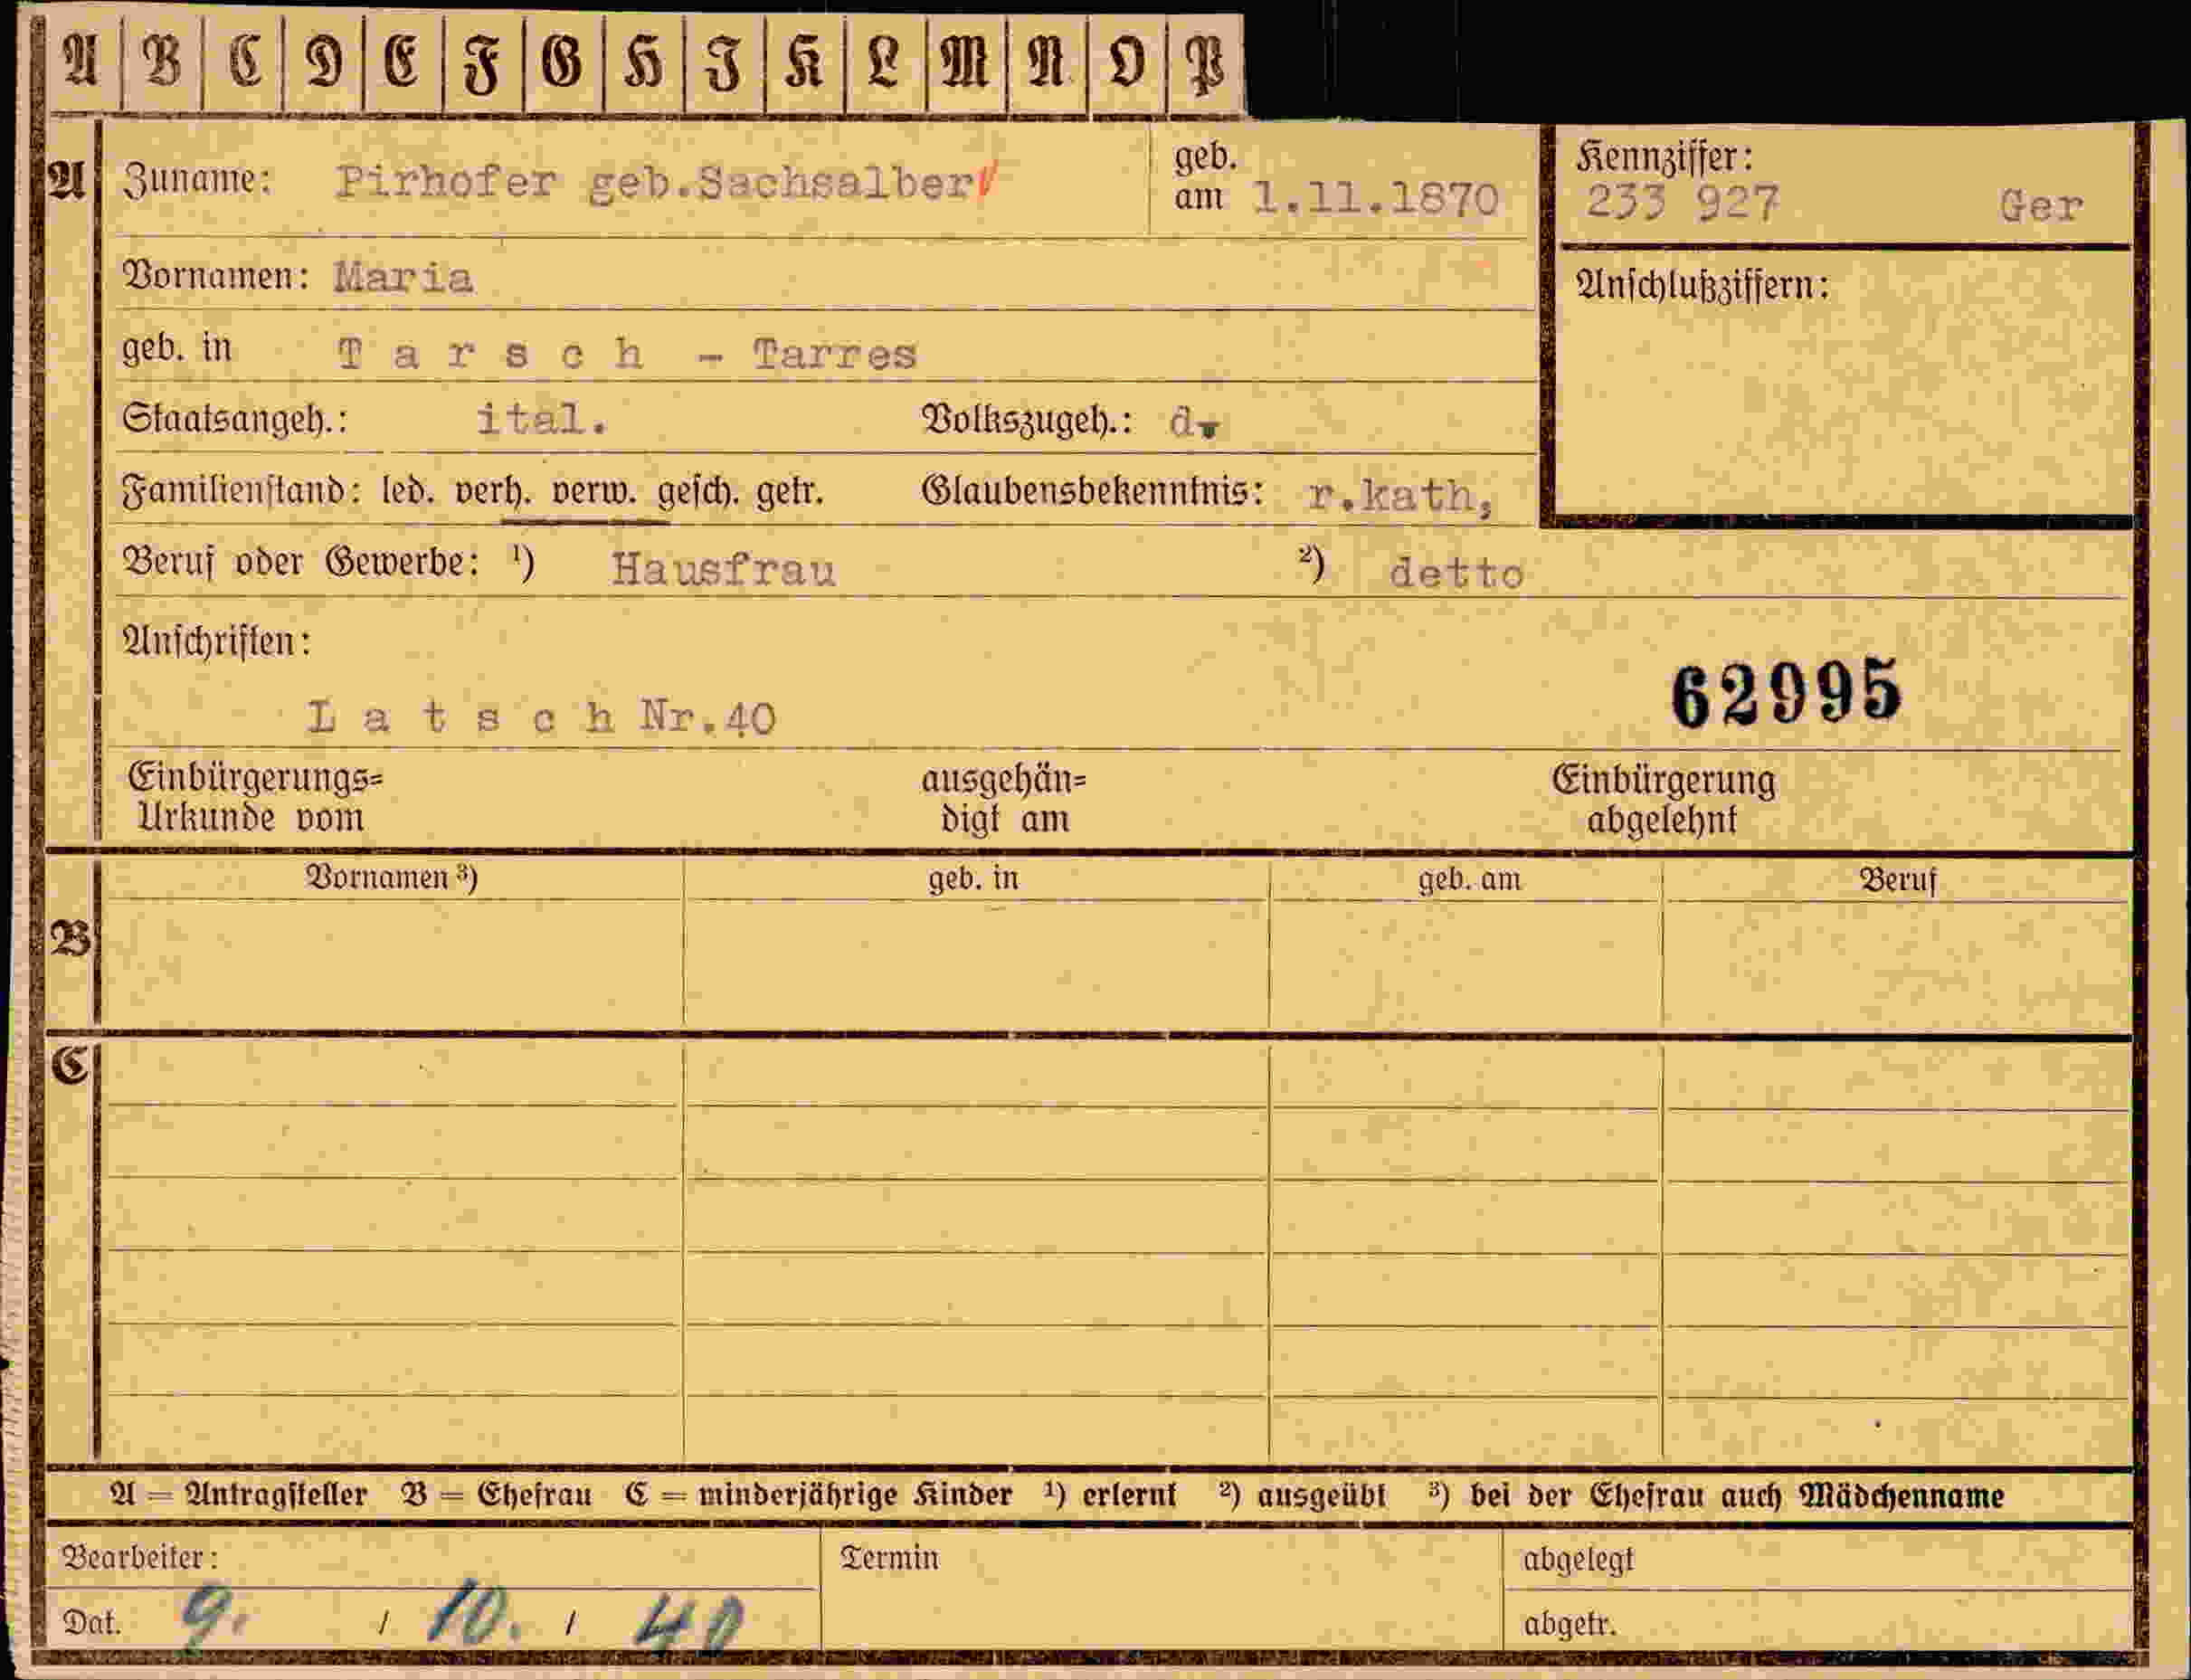 A B C D E F G H I K L M N O P
A Zuname: Pirhofer geb.Sachsalber
geb. am 1.11.1870
Kennziffer:
233 927 Ger
Vornamen: Maria
Anschlußziffern:
geb. in T a r s c h - Tarres
Staatsangeh.: ital. Volkszugeh.: d.
Familienstand: led. verh. verw. gesch. getr. Glaubensbekenntnis: r.kath,
Beruf oder Gewerbe: 1) Hausfrau 2) detto
Anschriften:
62995
L a t s c h Nr.40
Einbürgerungs= ausgehän= Einbürgerung
Urkunde vom digt am abgelehnt
Vornamen 3) geb. in geb. am Beruf
B
C
A = Antragsteller B = Ehefrau C = minderjährige Kinder 1) erlernt 2) ausgeübt 3) bei der Ehefrau auch Mädchenname
Bearbeiter: Termin abgelegt
Dat. 9. / 10. / 40 abgetr.